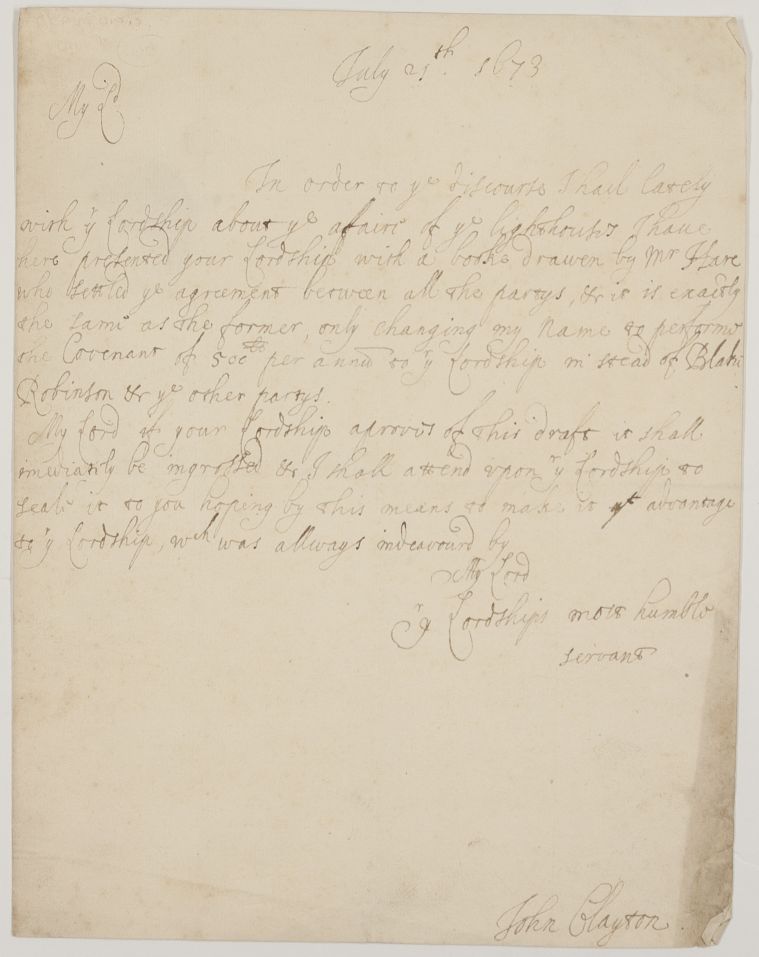 July 21th. 1673
My Ld
In order to ye discourse I had lately
with yr Lordship about ye affaire of ye lighthouses I have
here presented your Lordship with a booke drawen by Mr Hare
who setled ye agreement between all the partys, &c it is exactly
the same as the former, only changing my Name to performe
the Covenant of 500 per annū to yr Lordship in stead of Blake
Robinson &c ye other partys.
My Lord if your Lordship aproves of this draft it shall
imediately be ingrossed &c I shall attend upon yr Lordship to
seale it to you hoping by this means to make it yt advantage
to yr Lordship, wch was allways indeavourd by
My Lord
yr Lordships most humble
servant
John Clayton.